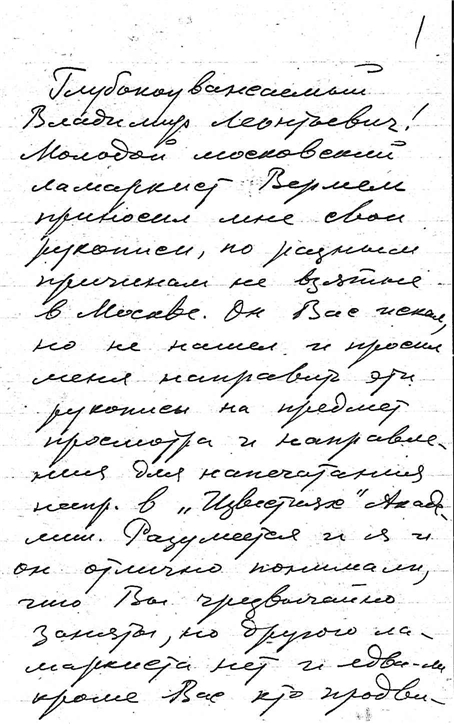 1
Глубокоуважаемый
Владимир Леонтьевич!
Молодой московский
ламаркист Вермель
приносил мне свои
рукописи, по разным
причинам не взятые
в Москве. Он Вас искал,
но не нашел и просил
меня направить эти
рукописи на предмет
просмотра и направле-
ния для напечатания
напр. в „Известиях" Акаде-
мии. Разумеется и я и
он отлично понимали,
что Вы чрезвычайно
заняты, но другого ла-
маркиста нет и едва-ли
кроме Вас кто продви-